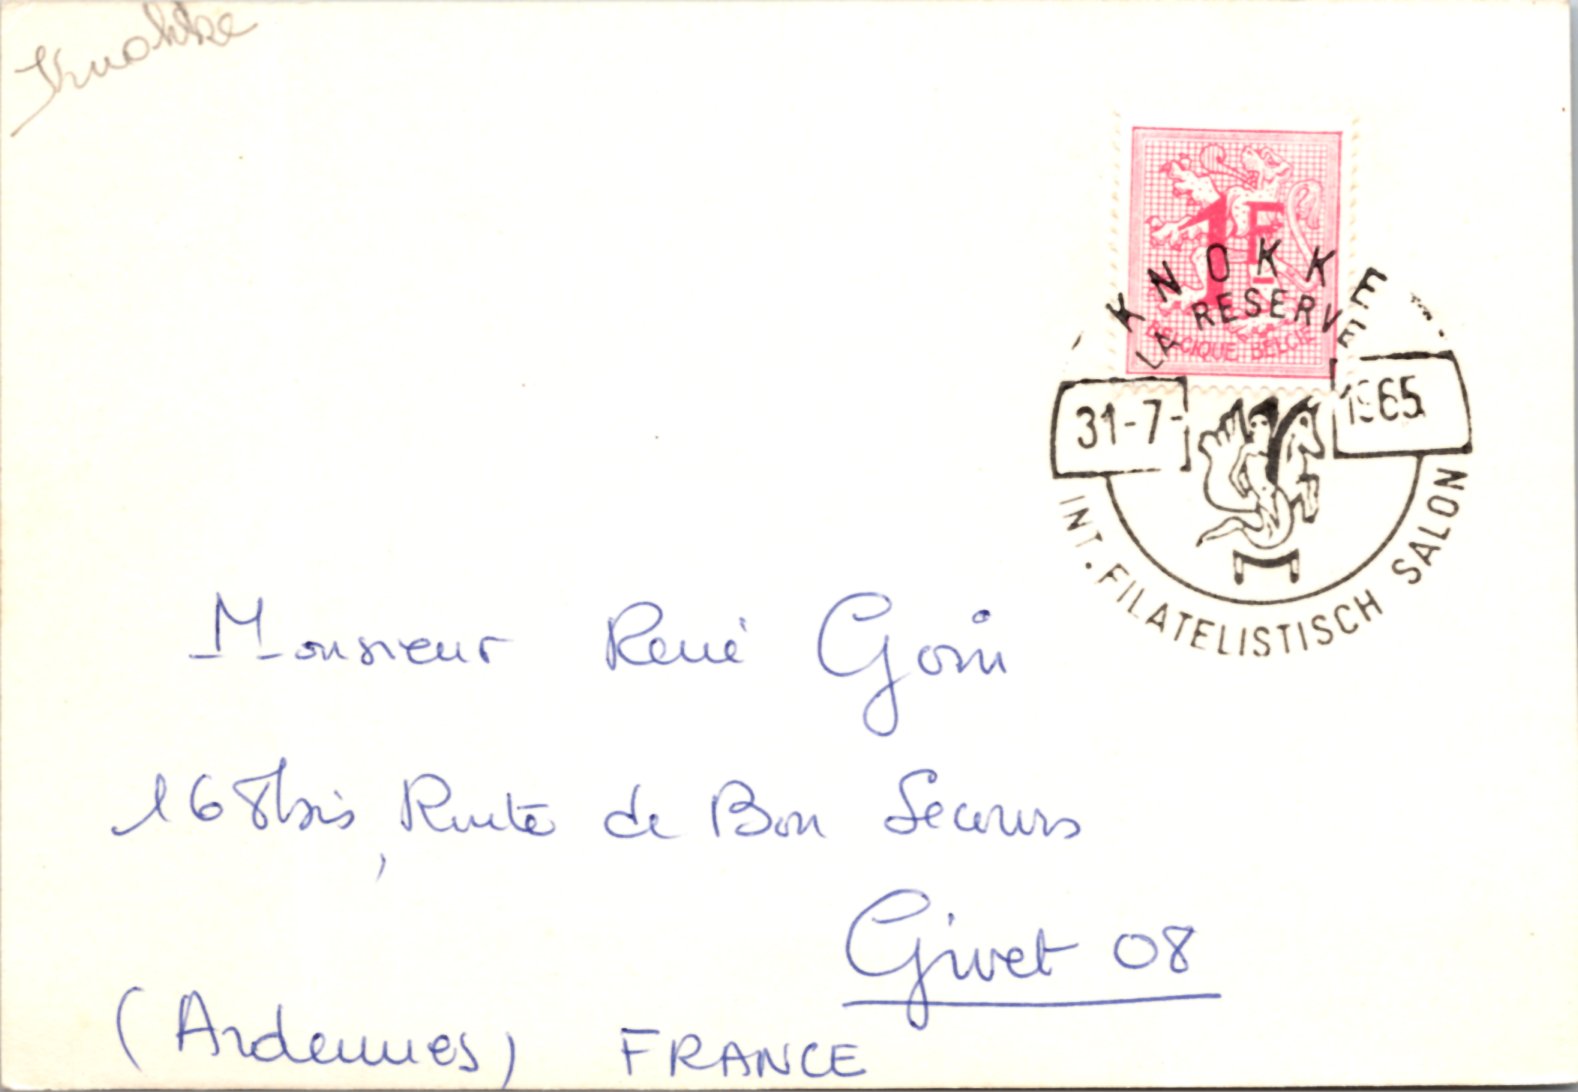 Knokke
1F
BELGIQUE BELGIE
KNOKKE
LA RESERVE
31-7-1965
INT. FILATELISTISCH SALON
Monsieur René Goin
168bis, Route de Bon Secours
Givet 08
(Ardennes) FRANCE